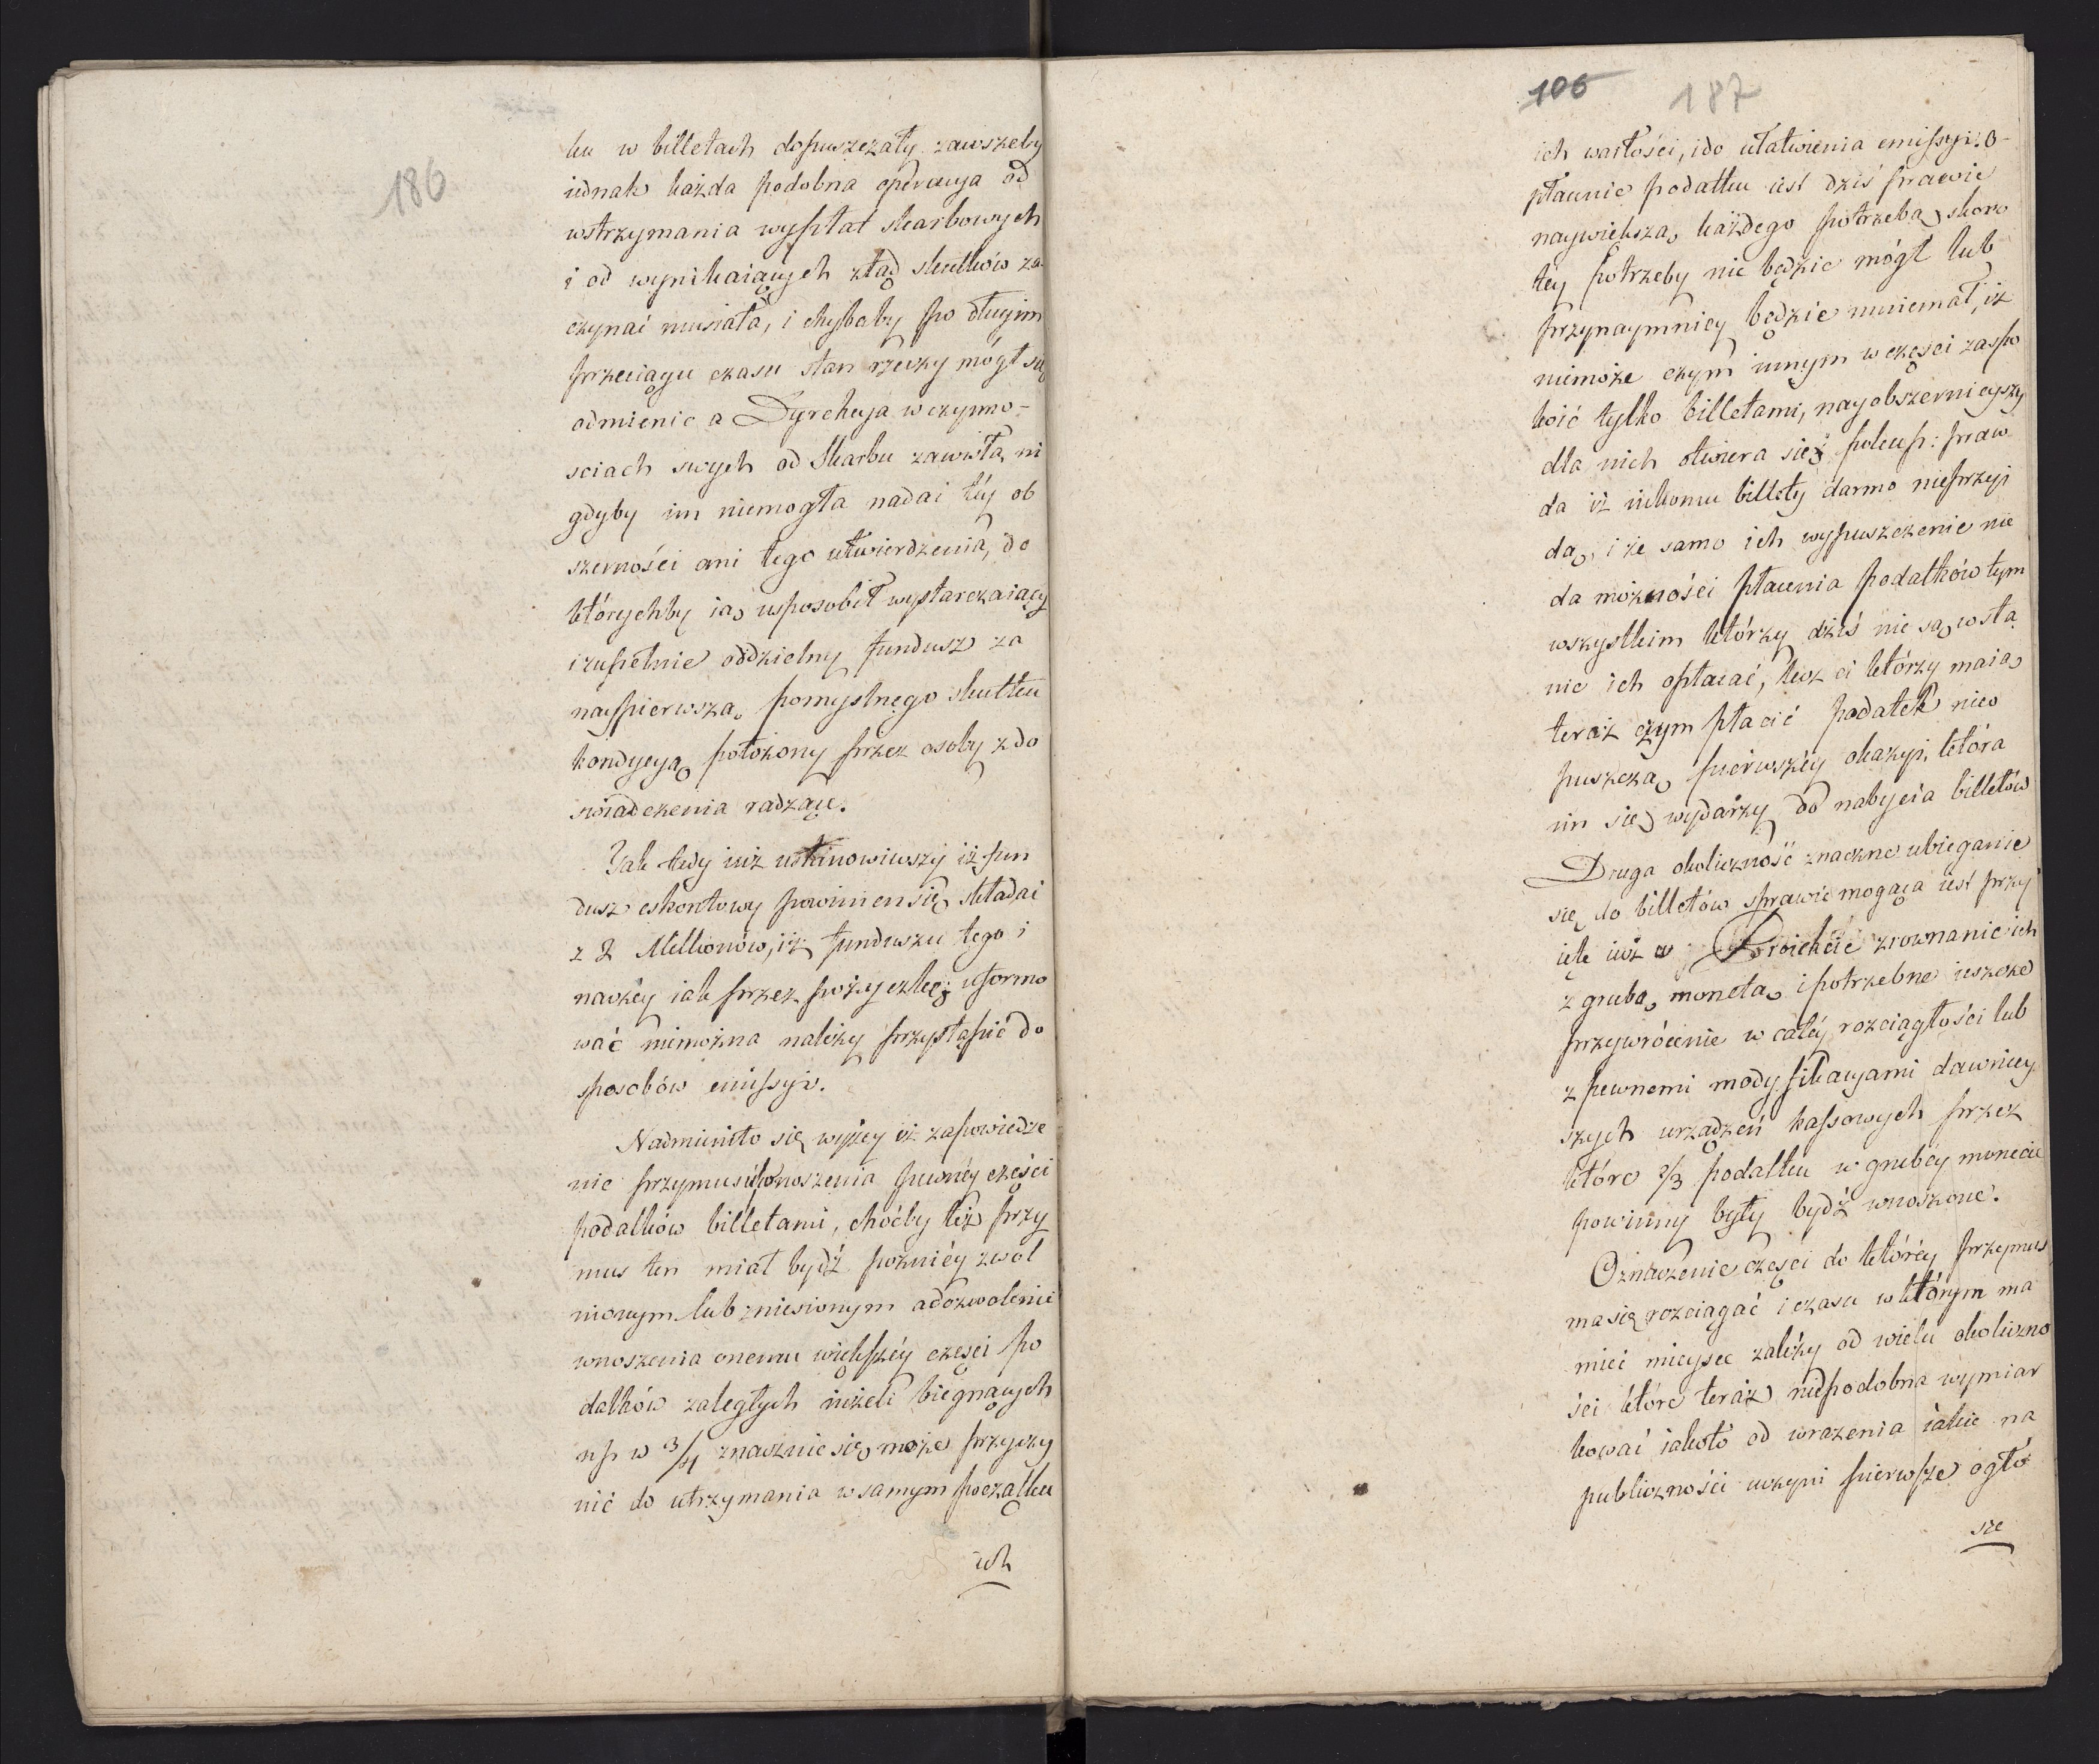 186
ku w billetach dopuszczały zawszeby
iednak każda podobna operacya od
wstrzymania wypłat skarbowych
i od wynikaiących ztąd skutków za-
czynać musiała, i chybaby po długim
przeciągu czasu stan rzeczy mógł się
odmienic a Dyrekcya w czynno-
sciach swych od Skarbu zawisła ni
gdyby im niemogła nadać téy ob
szerności ani tego utwierdzenia, do
którychby ią usposobił wystarczaiący
i zupełnie oddzielny fundusz za
naypierwszą pomyslnego skutku
kondycyą położony przez osoby z do
swiadczenia radzące.
Jak tedy iuż ustanowiwszy iż fun
dusz eskontowy powinien się składać
z 2 Millionów, iż funduszu tego i
naczey iak przez pożyczkę uformo
wać niemożna należy przystąpić do
sposobów emissyi.
Nadmieniło się wyżey iż zapowiedze
nie przymusu wnoszenia pewnéy części
podatków billetami, choćby też przy
mus ten miał bydź pozniéy zwol
nionym lub zniesionym a dozwolenie
wnoszenia onemu większéy części po
datków zaległych niżeli biegnących
np w 3/4 znacznie się może przyczy
nić do utrzymania w samym początku
ich
106 187
ich wartości, i do ułatwienia emissyi. O-
płacenie podatku iest dziś prawie
naywiększą każdego potrzebą, skoro
téy potrzeby nie będzie mógł lub
przynaymniey będzie mniemał, iż
niemoże czym innym w części zaspo
koić tylko billetami, nayobszernieyszy
dla nich otwiera się pokup: praw-
da iż nikomu billety darmo nieprzyi
dą, i że samo ich wypuszczenie nie
da możności płacenia podatków tym
wszystkim którzy dziś nie są w sta
nie ich opłacać, lecz ci którzy maią
teraz czym płacić podatek nieo
puszczą pierwszéy okazyi, która
im się wydarzy do nabycia billetów
Druga okoliczność znaczne ubieganie
się do billetów sprawić mogąca iest przy
ięte iuż w Proiekcie zrownanie ich
z grubą monetą i potrzebne ieszcze
przywrócenie w całéy rozciągłości lub
z pewnemi modyfikacyami dawniey
szych urządzeń kassowych przez
które 2/3 podatku w grubey monecie
powinny były bydź wnoszone.
Oznaczenie części do któréy przymus
ma się rozciągać i czasu w którym ma
mieć mieysce zależy od wielu okoliczno
ści które teraz niepodobna wymiar
kować iakoto od wrazenia iakie na
publiczności uczyni pierwsze ogło
sze